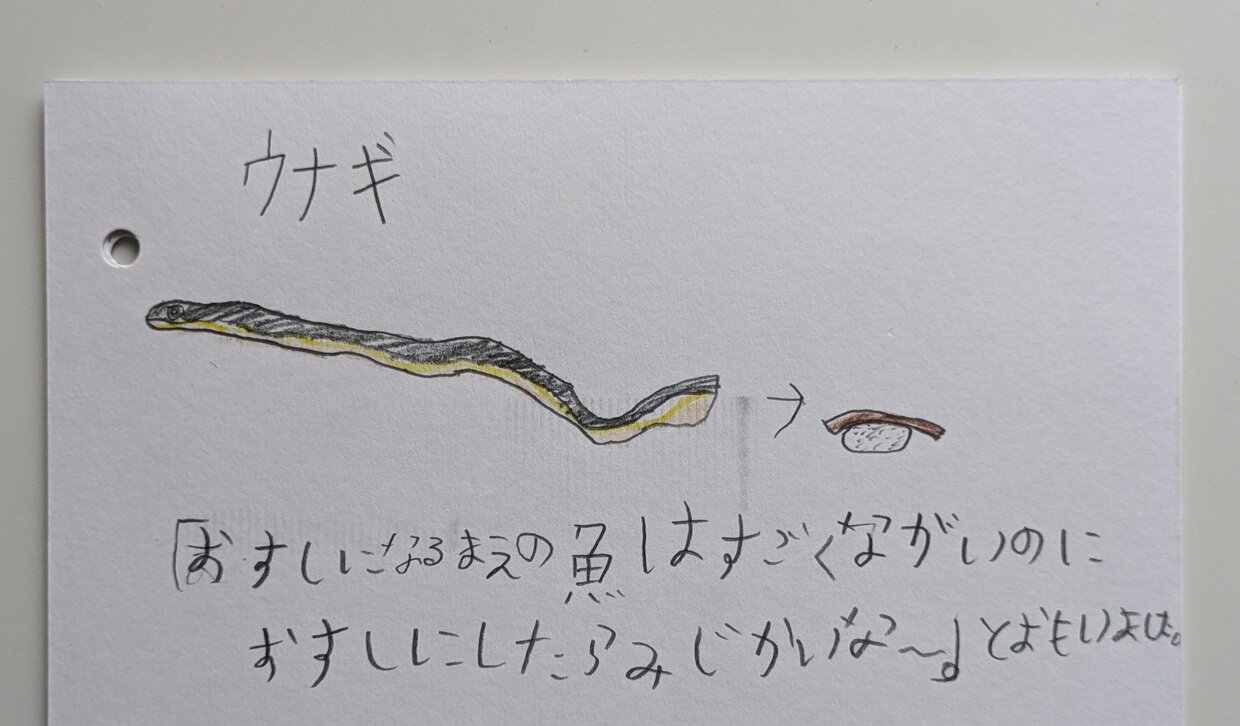 ウナギ
→
「おすしになるまえの魚はすごくながいのに
おすしにしたらみじかいな〜」とおもいました。